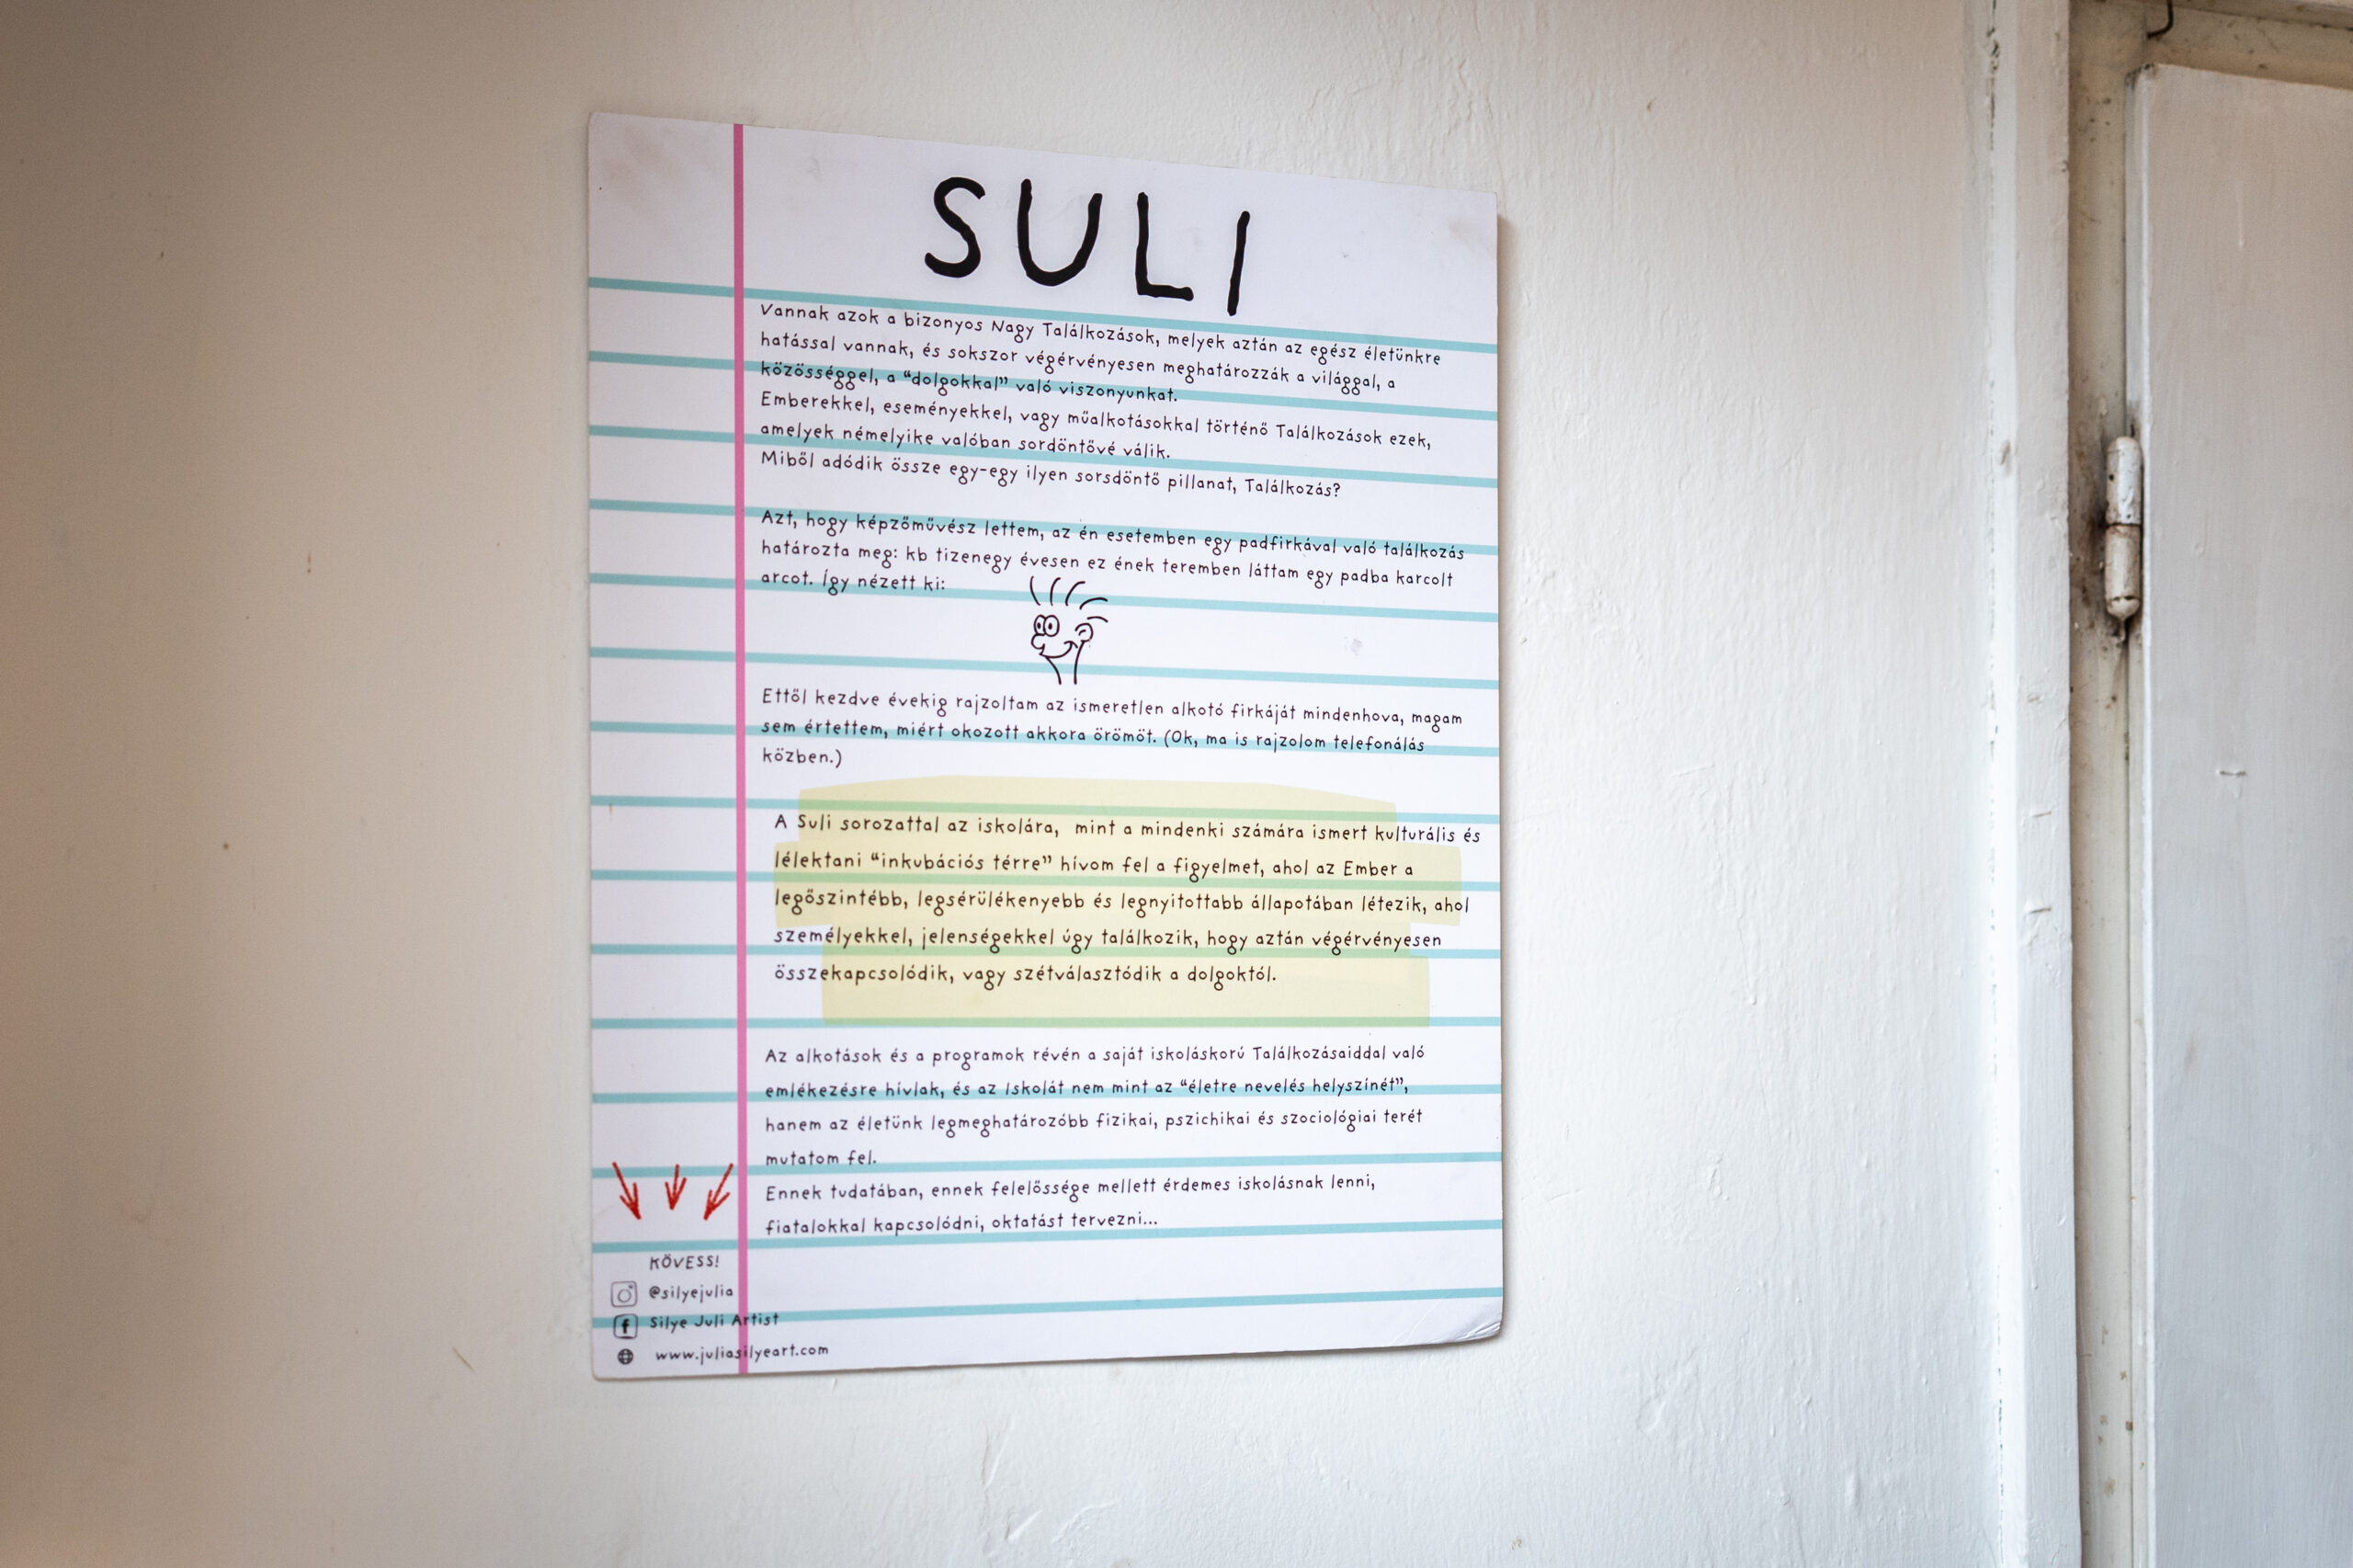 SULI
Vannak azok a bizonyos Nagy Találkozások, melyek aztán az egész életünkre
hatással vannak, és sokszor végérvényesen meghatározzák a világgal, a
közösséggel, a “dolgokkal” való viszonyunkat.
Emberekkel, eseményekkel, vagy műalkotásokkal történő Találkozások ezek,
amelyek némelyike valóban sordöntővé válik.
Miből adódik össze egy-egy ilyen sorsdöntő pillanat, Találkozás?
Azt, hogy képzőművész lettem, az én esetemben egy padfirkával való találkozás
határozta meg: kb tizenegy évesen ez ének teremben láttam egy padba karcolt
arcot. Így nézett ki:
Ettől kezdve évekig rajzoltam az ismeretlen alkotó firkáját mindenhova, magam
sem értettem, miért okozott akkora örömöt. (Ok, ma is rajzolom telefonálás
közben.)
A Suli sorozattal az iskolára, mint a mindenki számára ismert kulturális és
lélektani “inkubációs térre” hívom fel a figyelmet, ahol az Ember a
legőszintébb, legsérülékenyebb és legnyitottabb állapotában létezik, ahol
személyekkel, jelenségekkel úgy találkozik, hogy aztán végérvényesen
összekapcsolódik, vagy szétválasztódik a dolgoktól.
Az alkotások és a programok révén a saját iskoláskorú Találkozásaiddal való
emlékezésre hívlak, és az Iskolát nem mint az “életre nevelés helyszínét”,
hanem az életünk legmeghatározóbb fizikai, pszichikai és szociológiai terét
mutatom fel.
Ennek tudatában, ennek felelőssége mellett érdemes iskolásnak lenni,
fiatalokkal kapcsolódni, oktatást tervezni...
KÖVESS!
@silyejulia
Silye Juli Artist
www.juliasilyeart.com